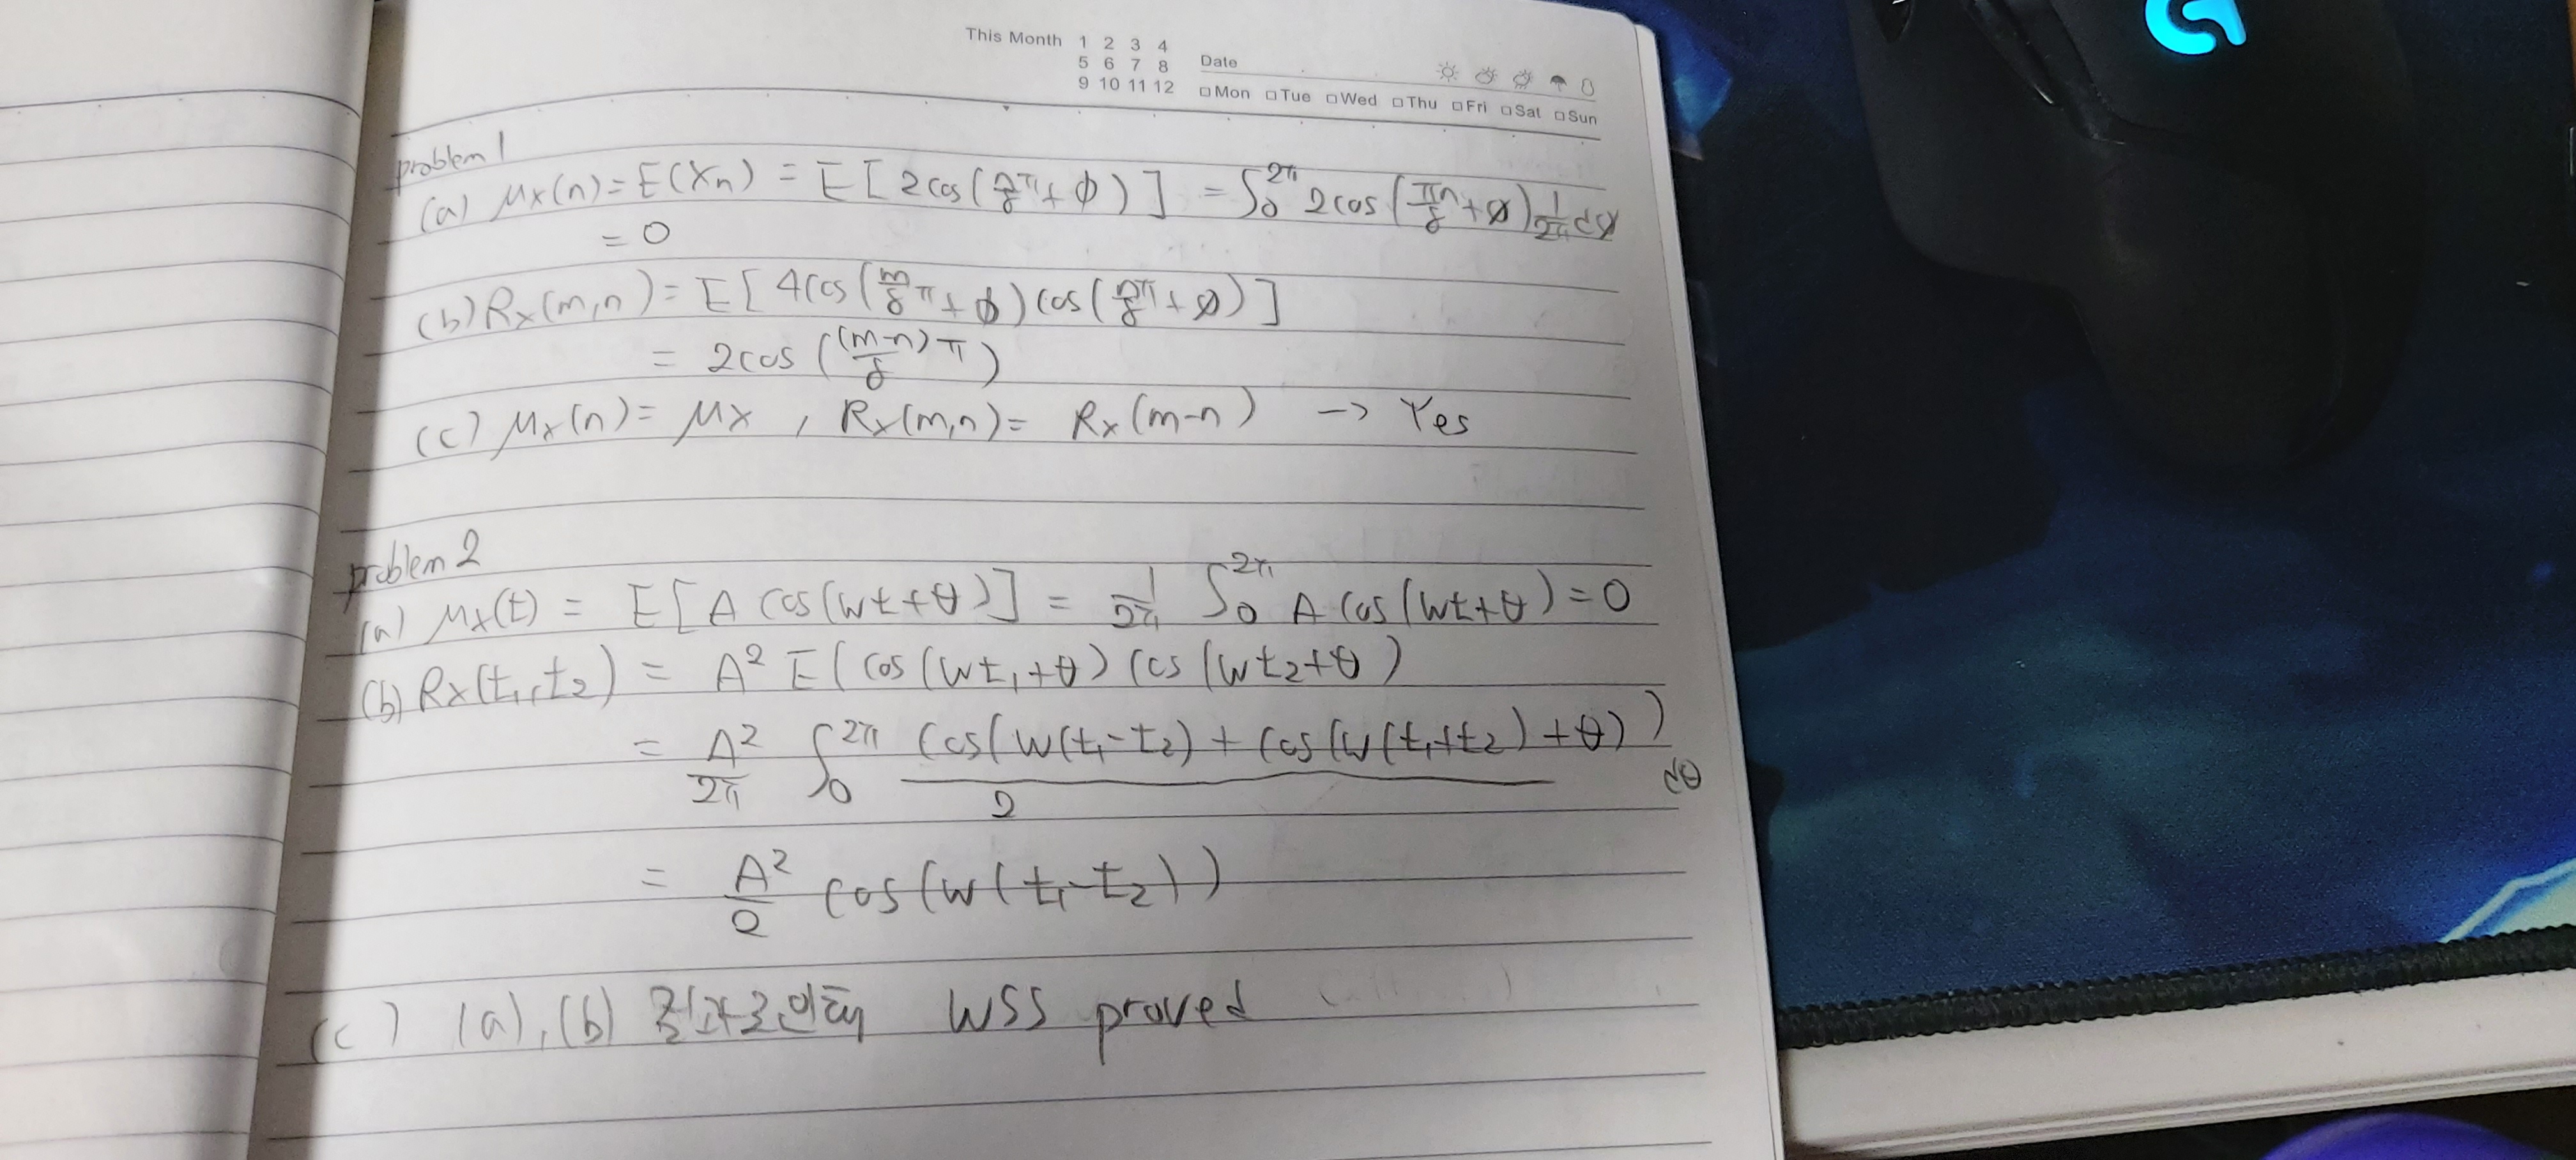 This Month 1 2 3 4
5 6 7 8
9 10 11 12
Date
□Mon □Tue □Wed □Thu □Fri □Sat □Sun
problem 1
(a) μx(n) = E(Xn) = E[2cos(n/8 π + φ)] = ∫₀^2π 2cos(πn/8 + φ) 1/2π dφ
= 0
(b) Rx(m,n) = E[4cos(m/8 π + φ)cos(n/8 π + φ)]
= 2cos((m-n)/8 π)
(c) μx(n) = μx , Rx(m,n) = Rx(m-n) → Yes
problem 2
(a) μx(t) = E[A cos(wt+θ)] = 1/2π ∫₀^2π A cos(wt+θ) = 0
(b) Rx(t₁,t₂) = A² E(cos(wt₁+θ)cos(wt₂+θ)
= A²/2π ∫₀^2π (cos(w(t₁-t₂)+cos(w(t₁+t₂)+θ))/2 dθ
= A²/2 cos(w(t₁-t₂))
(c) (a),(b) WSS proved